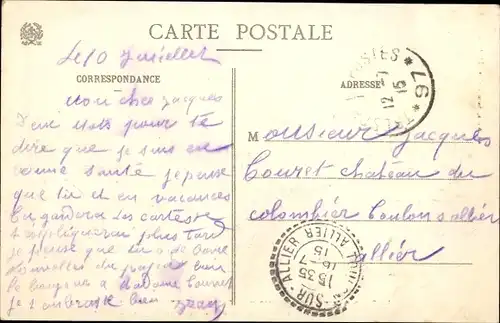 CARTE POSTALE
CORRESPONDANCE
ADRESSE
Le 10 Juillet
Mon cher Jacques
Deux mots pour te
dire que je suis en
bonne santé je pense
que tu et en vacances
Tu gardera les cartes
plus tard
je pense que tu a de bone
nouvelles du papa bien
le bonjour a Madame
je t'embrasse bien
Monsieur Jacques
Couret chateau du
colombier Toulon s allier
allier
POSTES
12 - 7
15
* 97 *
SUR - ALLIER
ALLIER
15 35
16 - 7
15